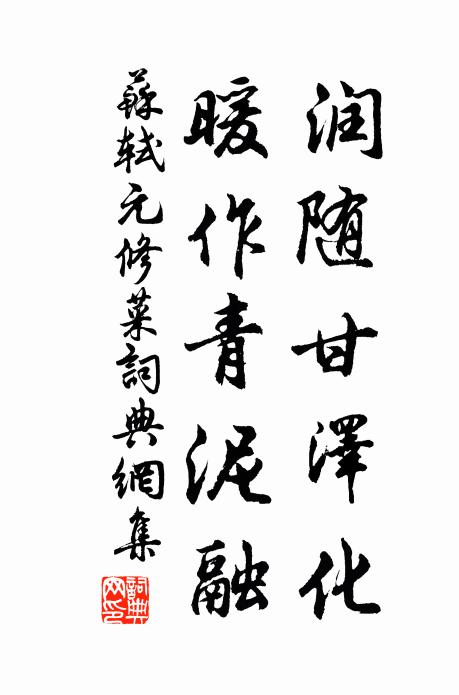 润随甘澤化
暖作青泥融
蘇軾元修菜詞典網集
詞典网印